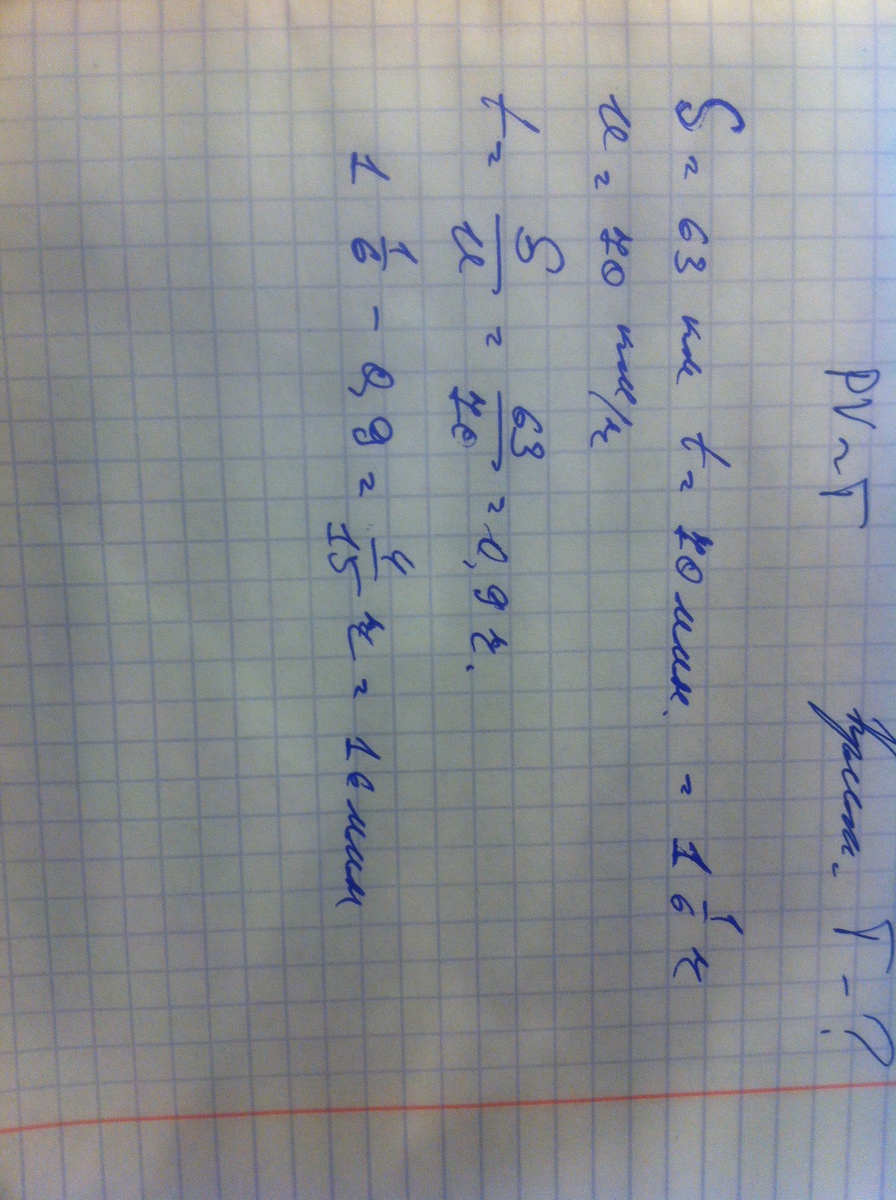 PV ~ T T - ?
S = 63 км t = 70 мин. = 1 1/6 ч
u = 70 км/ч
t = S/u = 63/70 = 0,9 ч.
1 1/6 - 0,9 = 4/15 ч = 16 мин